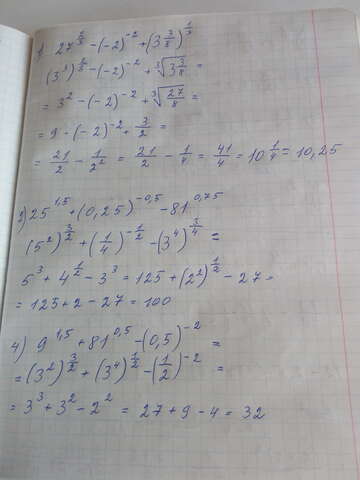 1) 27^(2/3) - (-2)^(-2) + (3 3/8)^(1/3)
(3^3)^(2/3) - (-2)^(-2) + ∛(3 3/8) =
= 3^2 - (-2)^(-2) + ∛(27/8) =
= 9 - (-2)^(-2) + 3/2 =
= 21/2 - 1/2^2 = 21/2 - 1/4 = 41/4 = 10 1/4 = 10,25
3) 25^(1,5) + (0,25)^(-0,5) - 81^(0,75)
(5^2)^(3/2) + (1/4)^(-1/2) - (3^4)^(3/4) =
5^3 + 4^(1/2) - 3^3 = 125 + (2^2)^(1/2) - 27 =
= 125 + 2 - 27 = 100
4) 9^(1,5) + 81^(0,5) - (0,5)^(-2) =
= (3^2)^(3/2) + (3^4)^(1/2) - (1/2)^(-2) =
= 3^3 + 3^2 - 2^2 = 27 + 9 - 4 = 32